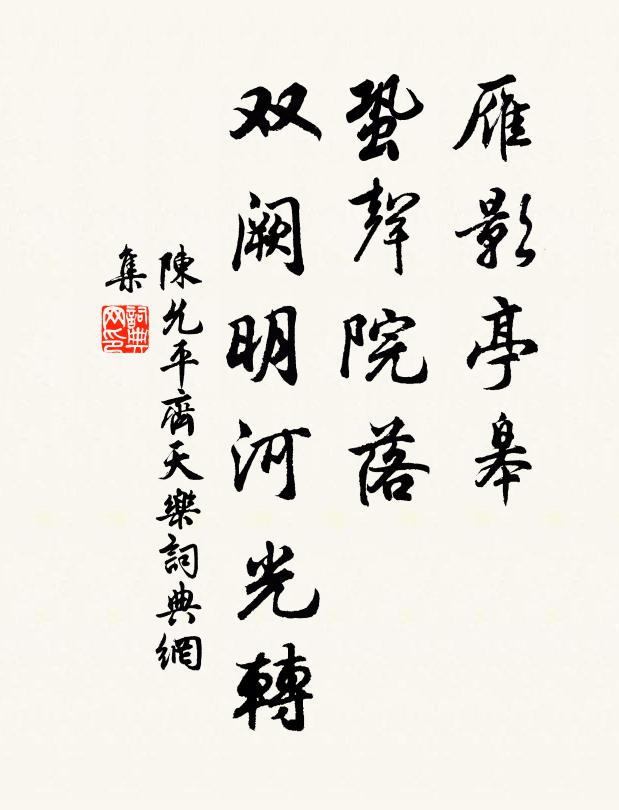 雁影亭皋
蛩聲院落
双阙明河光轉
陳允平齊天樂詞典網
集
詞典
网印